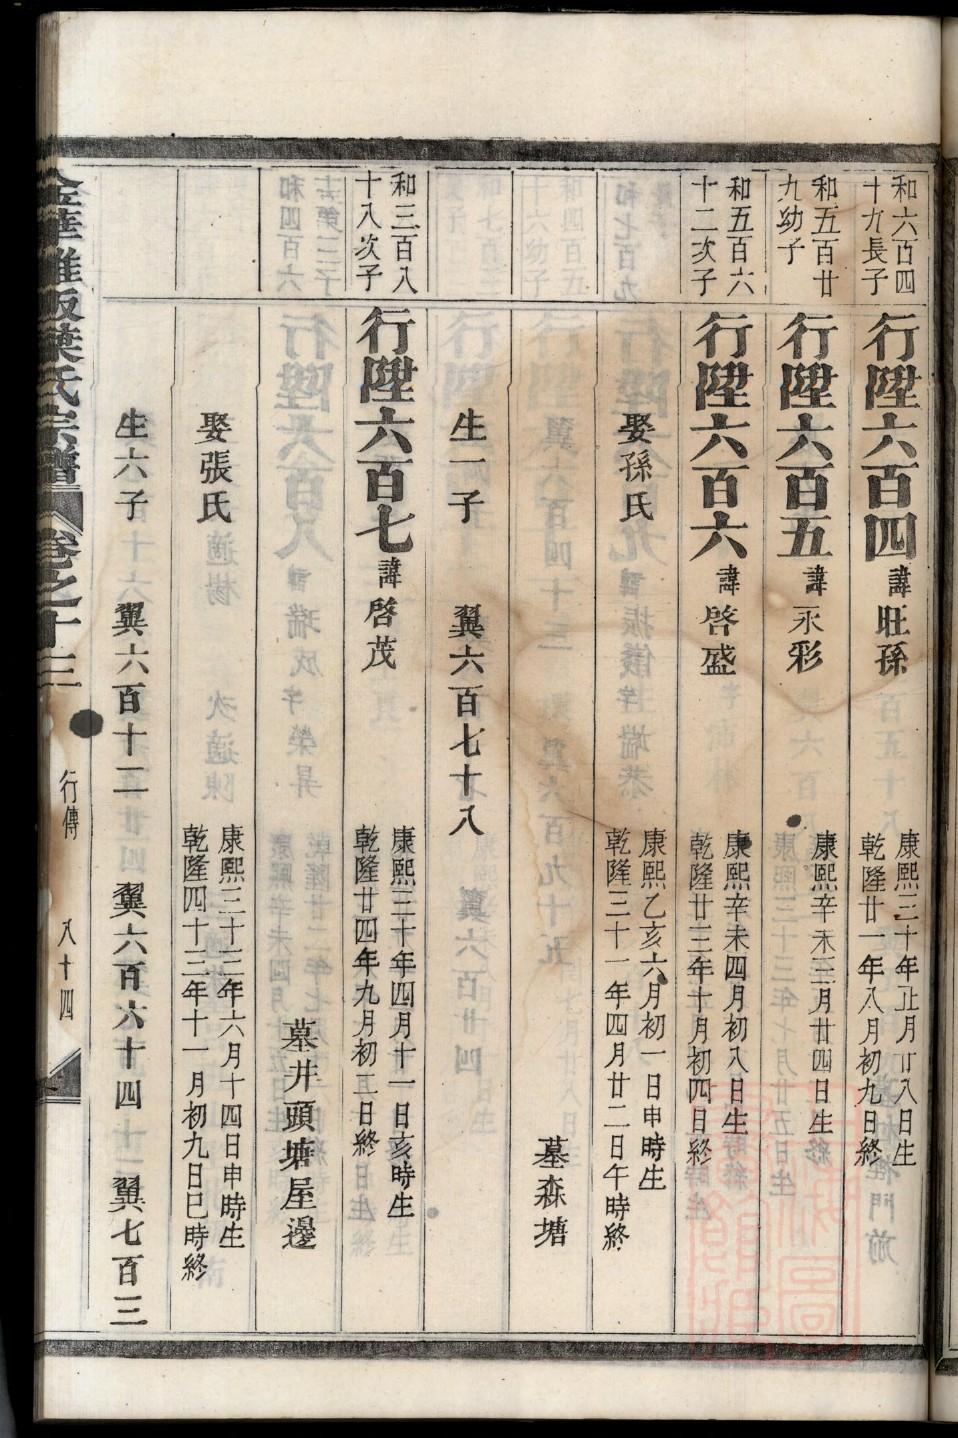 和六百四
十九長子
行陞六百四
諱旺孫
康熙三十年正月廿八日生
乾隆廿一年八月初九日終
和五百廿
九幼子
行陞六百五
諱永彩
康熙辛未三月廿四日生
和五百六
十二次子
行陞六百六
諱啓盛
康熙辛未四月初八日生
乾隆廿三年十月初四日終
娶孫氏
康熙乙亥六月初一日申時生
乾隆三十一年四月廿二日午時終
墓森塘
生一子
翼六百七十八
和三百八
十八次子
行陞六百七
諱啓茂
康熙三十年四月十一日亥時生
乾隆廿四年九月初五日終
墓井頭塘屋邊
娶張氏
康熙三十三年六月十四日申時生
乾隆四十三年十一月初九日巳時終
生六子
翼六百十二
翼六百六十四
翼七百三
葉氏宗譜
卷之十三
行傳
八十四